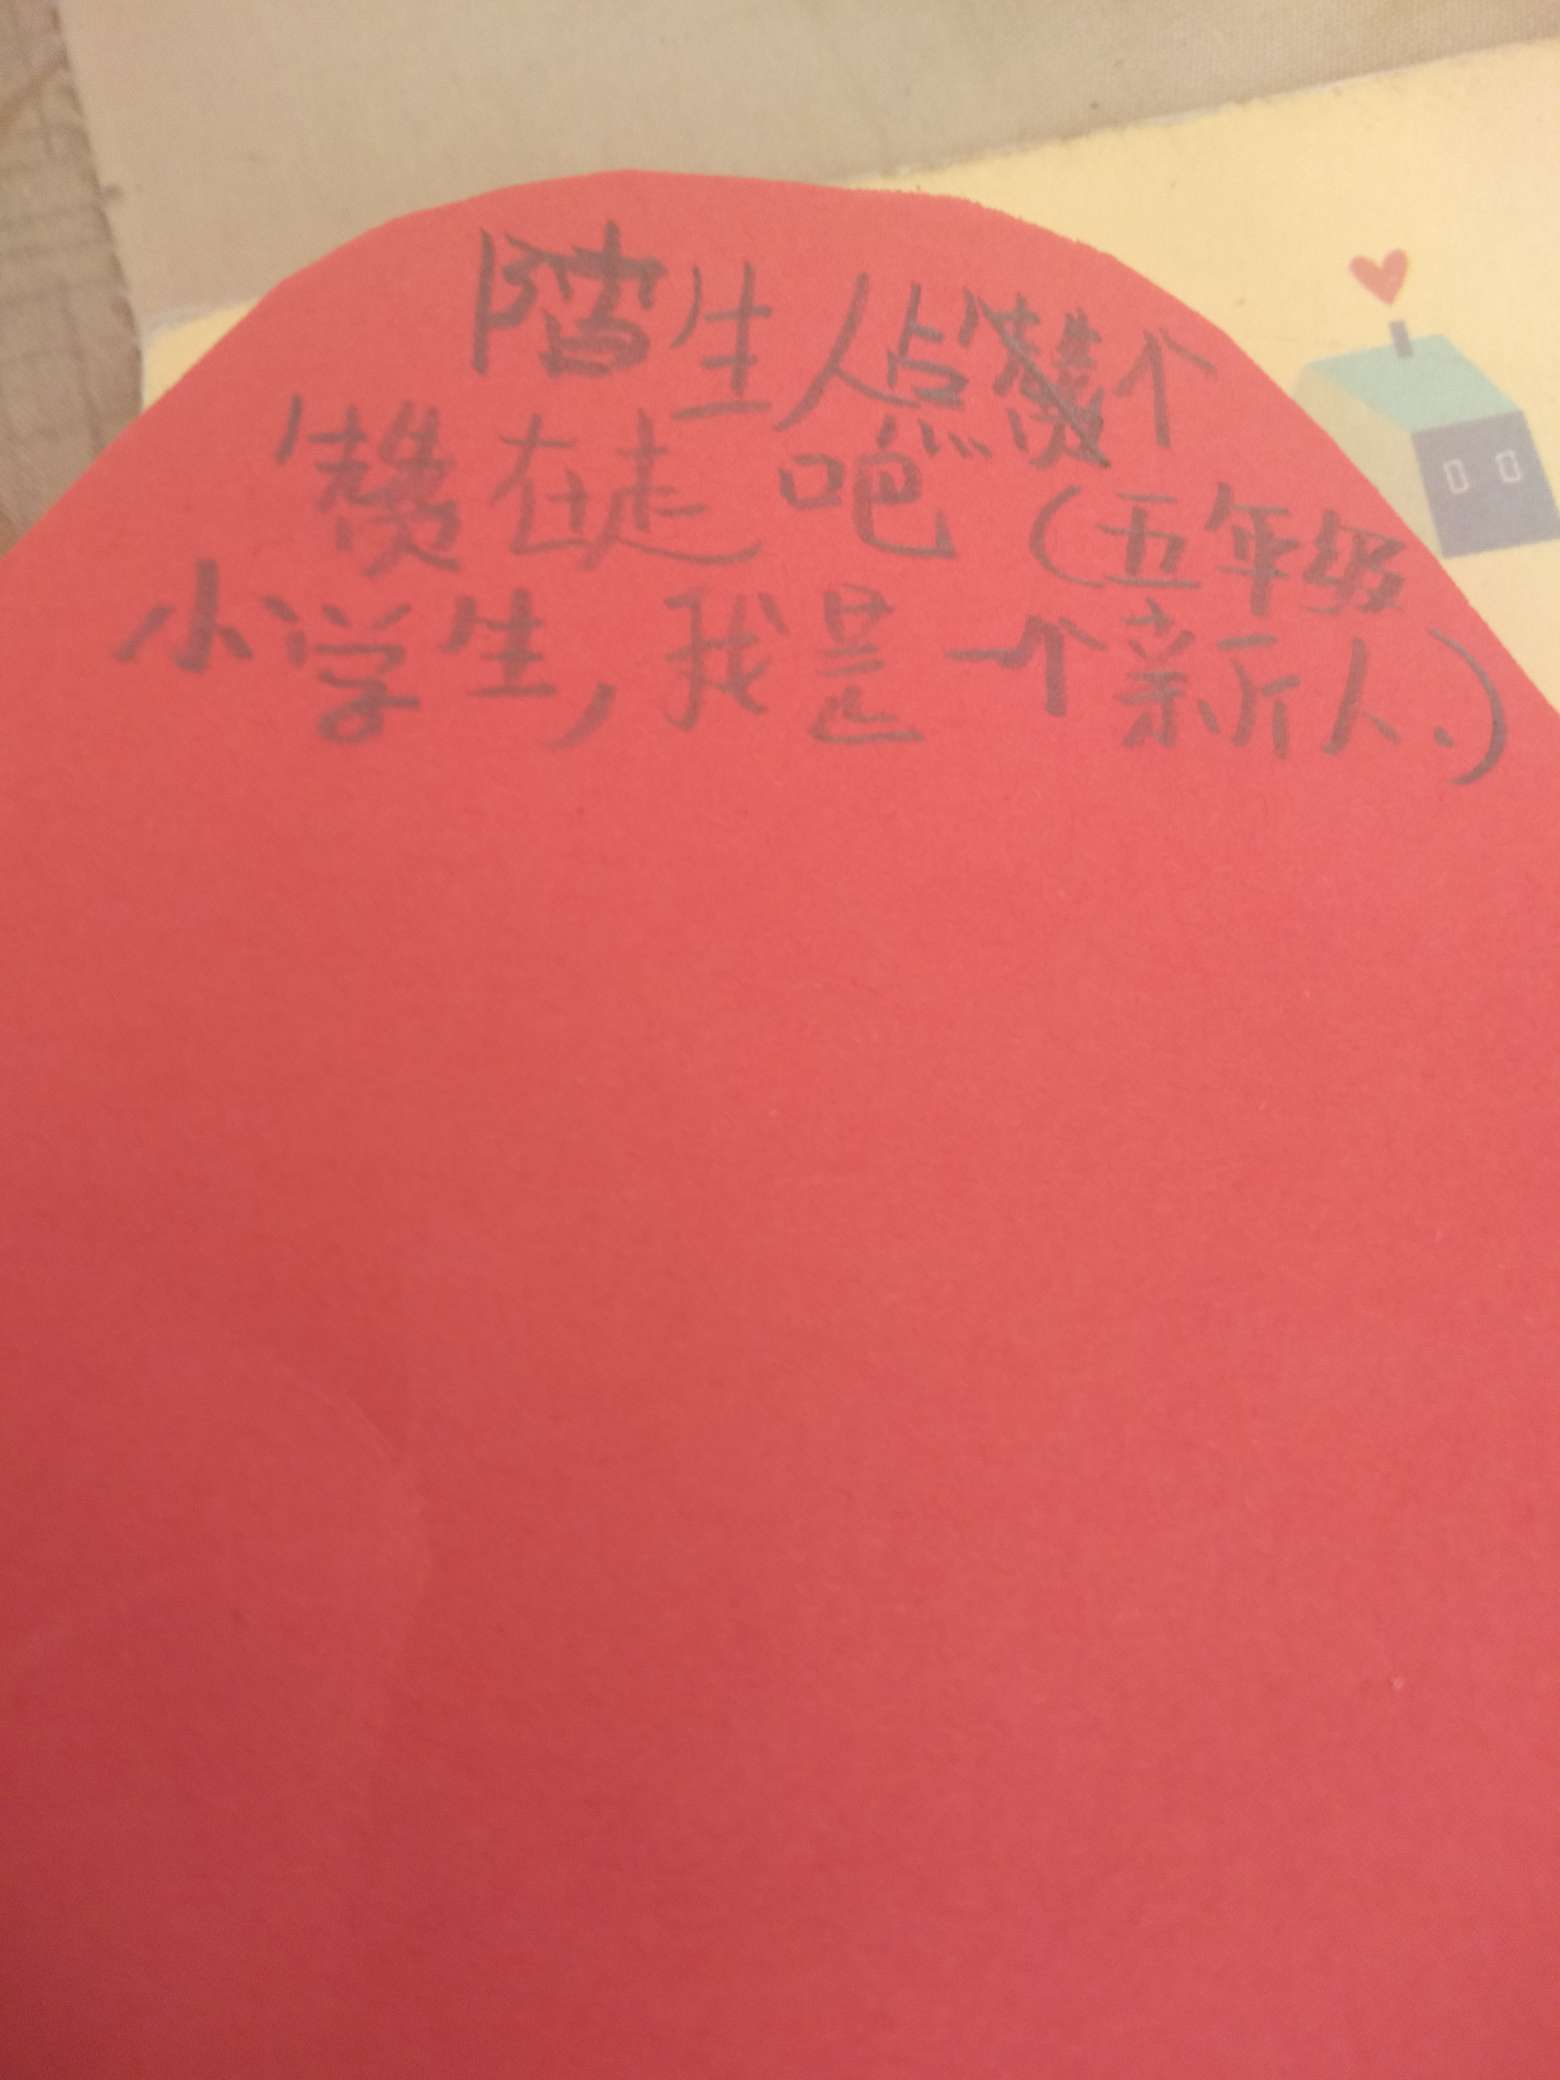 陌生人点个
赞在走吧（五年级
小学生,我是一个新人.）